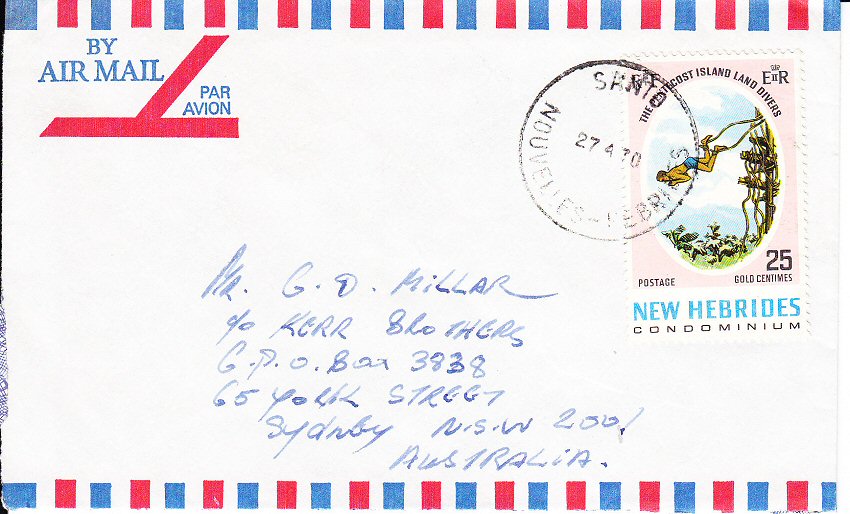 BY
AIR MAIL
PAR
AVION
SANTO
27 4 70
NOUVELLES-HEBRIDES
THE PENTECOST ISLAND LAND DIVERS
EIIR
25
POSTAGE GOLD CENTIMES
NEW HEBRIDES
CONDOMINIUM
Mr. G. D. MILLAR
c/o KERR BROTHERS
G.P.O. Box 3838
65 YORK STREET
Sydney N.S.W 2001
AUSTRALIA.